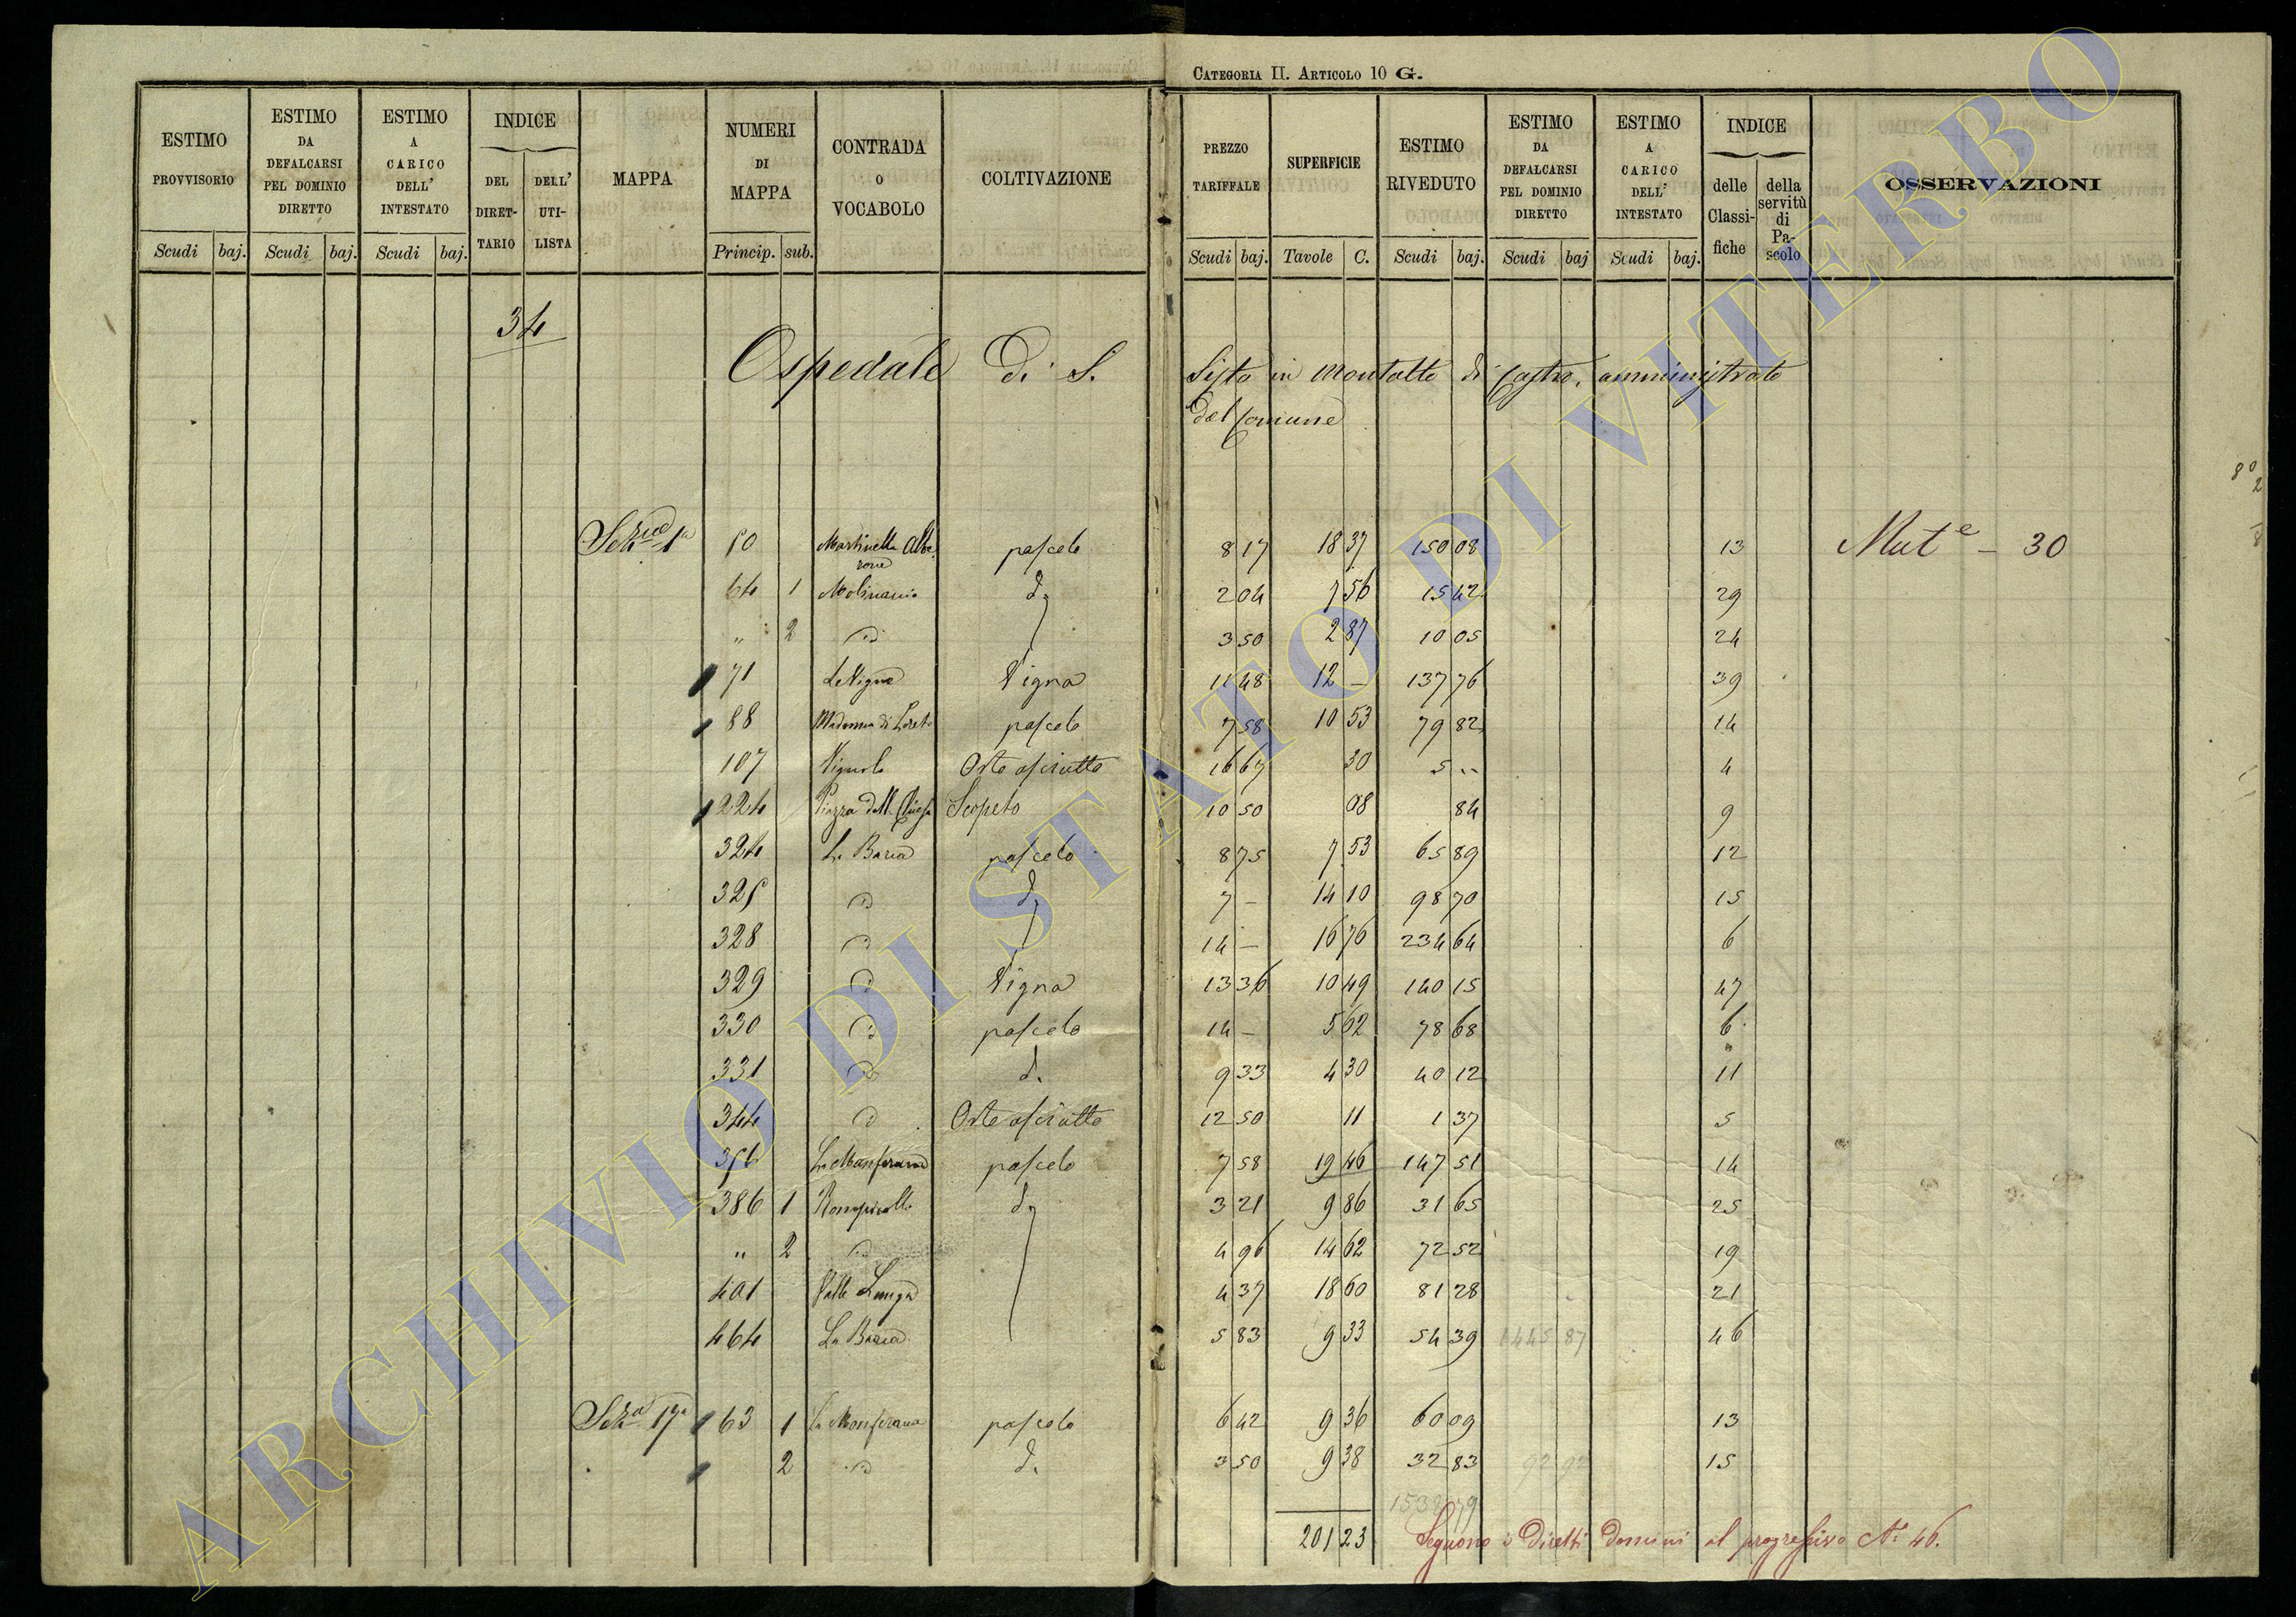 CATEGORIA II. ARTICOLO 10 G.
ESTIMO PROVVISORIO Scudi baj. ESTIMO DA DEFALCARSI PEL DOMINIO DIRETTO Scudi baj. ESTIMO A CARICO DELL' INTESTATO Scudi baj. INDICE DEL DIRET-TARIO DELL' UTI-LISTA MAPPA NUMERI DI MAPPA Princip. sub. CONTRADA O VOCABOLO COLTIVAZIONE PREZZO TARIFFALE Scudi baj. SUPERFICIE Tavole C. ESTIMO RIVEDUTO Scudi baj. ESTIMO DA DEFALCARSI PEL DOMINIO DIRETTO Scudi baj ESTIMO A CARICO DELL' INTESTATO Scudi baj. INDICE delle Classi-fiche della servitù di Pa-scolo OSSERVAZIONI
34
Ospedale di S. Sisto in Montalto di Castro, amministrato
dal Comune
Sezne 1a 50 Martinella Albe- pascolo 8 17 18 37 150 08 13 Mute - 30
rone
64 1 Molinario do 2 04 7 56 15 42 29
" 2 id 3 50 2 87 10 05 24
71 Le Vigne Vigna 11 48 12 – 137 76 39
88 Madonna di Loreto pascolo 7 58 10 53 79 82 14
107 Vignolo Orto asciutto 16 67 30 5 -- 4
224 Piazza della Chiesa Scopeto 10 50 08 84 9
324 La Bariа pascolo 8 75 7 53 65 89 12
325 id do 7 – 14 10 98 70 15
328 id 14 – 16 76 234 64 6
329 id Vigna 13 36 10 49 140 15 47
330 id pascolo 14 – 5 62 78 68 6
331 id do 9 33 4 30 40 12 11
344 id Orto asciutto 12 50 11 1 37 5
356 pascolo 7 58 19 46 147 51 14
386 1 do 3 21 9 86 31 65 25
" 2 id 4 96 14 62 72 52 19
401 Valle Lunga 4 37 18 60 81 28 21
464 La Baria 5 83 9 33 54 39 1445 87 46
Seza 17a 63 1 pascolo 6 42 9 36 60 09 13
2 id do 3 50 9 38 32 83 92 92 15
1538 79
201 23 Seguono i diretti domini al progressivo N. 46.
80
2
ARCHIVIO DI STATO DI VITERBO